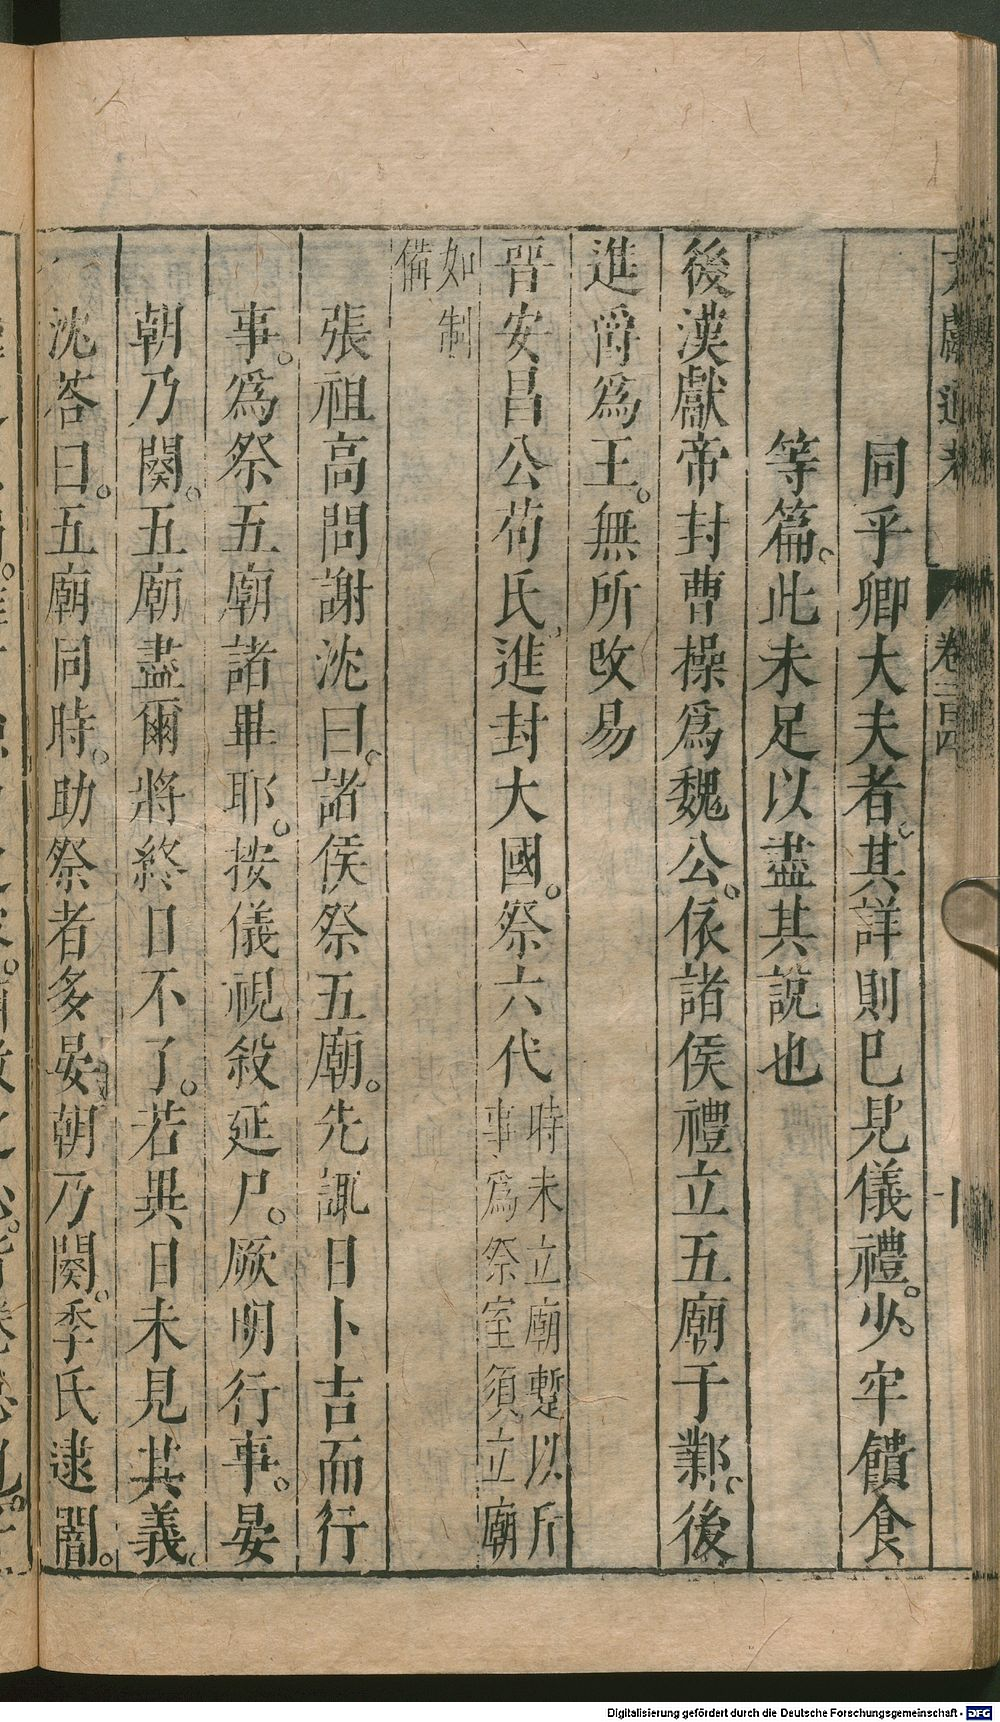 同乎卿大夫者。其詳則巳見儀禮。少牢饋食
等篇。此未足以盡其說也
後漢獻帝封曹操爲魏公。依諸侯禮立五廟于鄴。後
進爵爲王。無所改易
晉安昌公荀氏。進封大國。祭六代時未立廟蹔以所
事爲祭室須立廟
如制
備
張祖高問謝沈曰。諸侯祭五廟。先諏日卜吉而行
事。爲祭五廟諸畢耶。按儀視殺延尸。厥明行事。晏
朝乃闋。五廟盡爾將終日不了。若異日未見其義。
沈答曰。五廟同時。助祭者多晏朝乃闋。季氏逮闇。
卷一百四
十
Digitalisierung gefördert durch die Deutsche Forschungsgemeinschaft - DFG